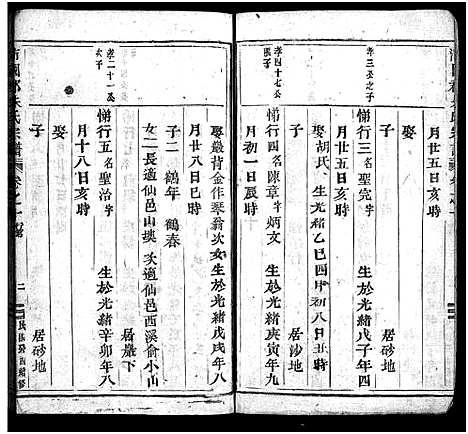 孝三公之子
悌行三名聖完字
生於光緒戊子年四
月廿五日亥時
居砂地
娶胡氏生光緒乙巳四月初八日丑時
子
孝四十七公
長子
悌行四名陳章字炳文
生於光緒庚寅年九
月初一日辰時
居沙地
娶嚴背金作琴翁次女生於光緒戊戌年八
月廿八日巳時
子二鶴年 鶴春
女二長適仙邑山塽 次適仙邑西溪俞小山
居巖下
孝二十一公
子
悌行五名聖治字
生於光緒辛卯年八
月十八日亥時
娶
居砂地
子
朱氏宗譜
二